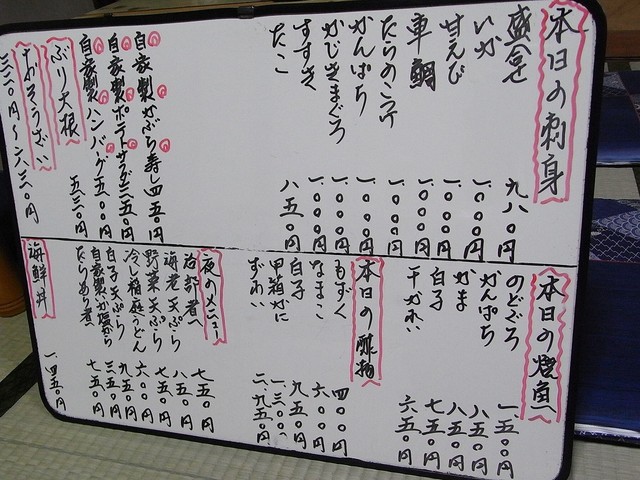 本日の刺身
盛合せ 九八〇円
いか 一、〇〇〇円
甘えび 一、〇〇〇円
車鯛 一、〇〇〇円
たらのこづけ 一、〇〇〇円
かんぱち 一、〇〇〇円
かじきまぐろ 一、〇〇〇円
すずき 一、〇〇〇円
たこ 八五〇円
自家製かぶら寿し 四五〇円
自家製ポテトサラダ 三五〇円
自家製ハンバーグ 五〇〇円
ぶり大根 五三〇円
おそうざい
三三〇円〜六三〇円
本日の焼魚
のどぐろ 一、五〇〇円
かんぱち
かま 八五〇円
白子 八五〇円
干がれい 七五〇円
六五〇円
本日の酢物
もずく 四〇〇円
なまこ 六〇〇円
白子 九五〇円
甲箱がに 一、三〇〇円
ずわい 二、九五〇円
夜のメニュー
治部煮 七五〇円
海老天ぷら 八五〇円
野菜天ぷら 七五〇円
冷し稲庭うどん 六〇〇円
白子天ぷら 九五〇円
自家製いか塩から 三五〇円
たらめら煮 七五〇円
海鮮丼 一、四五〇円